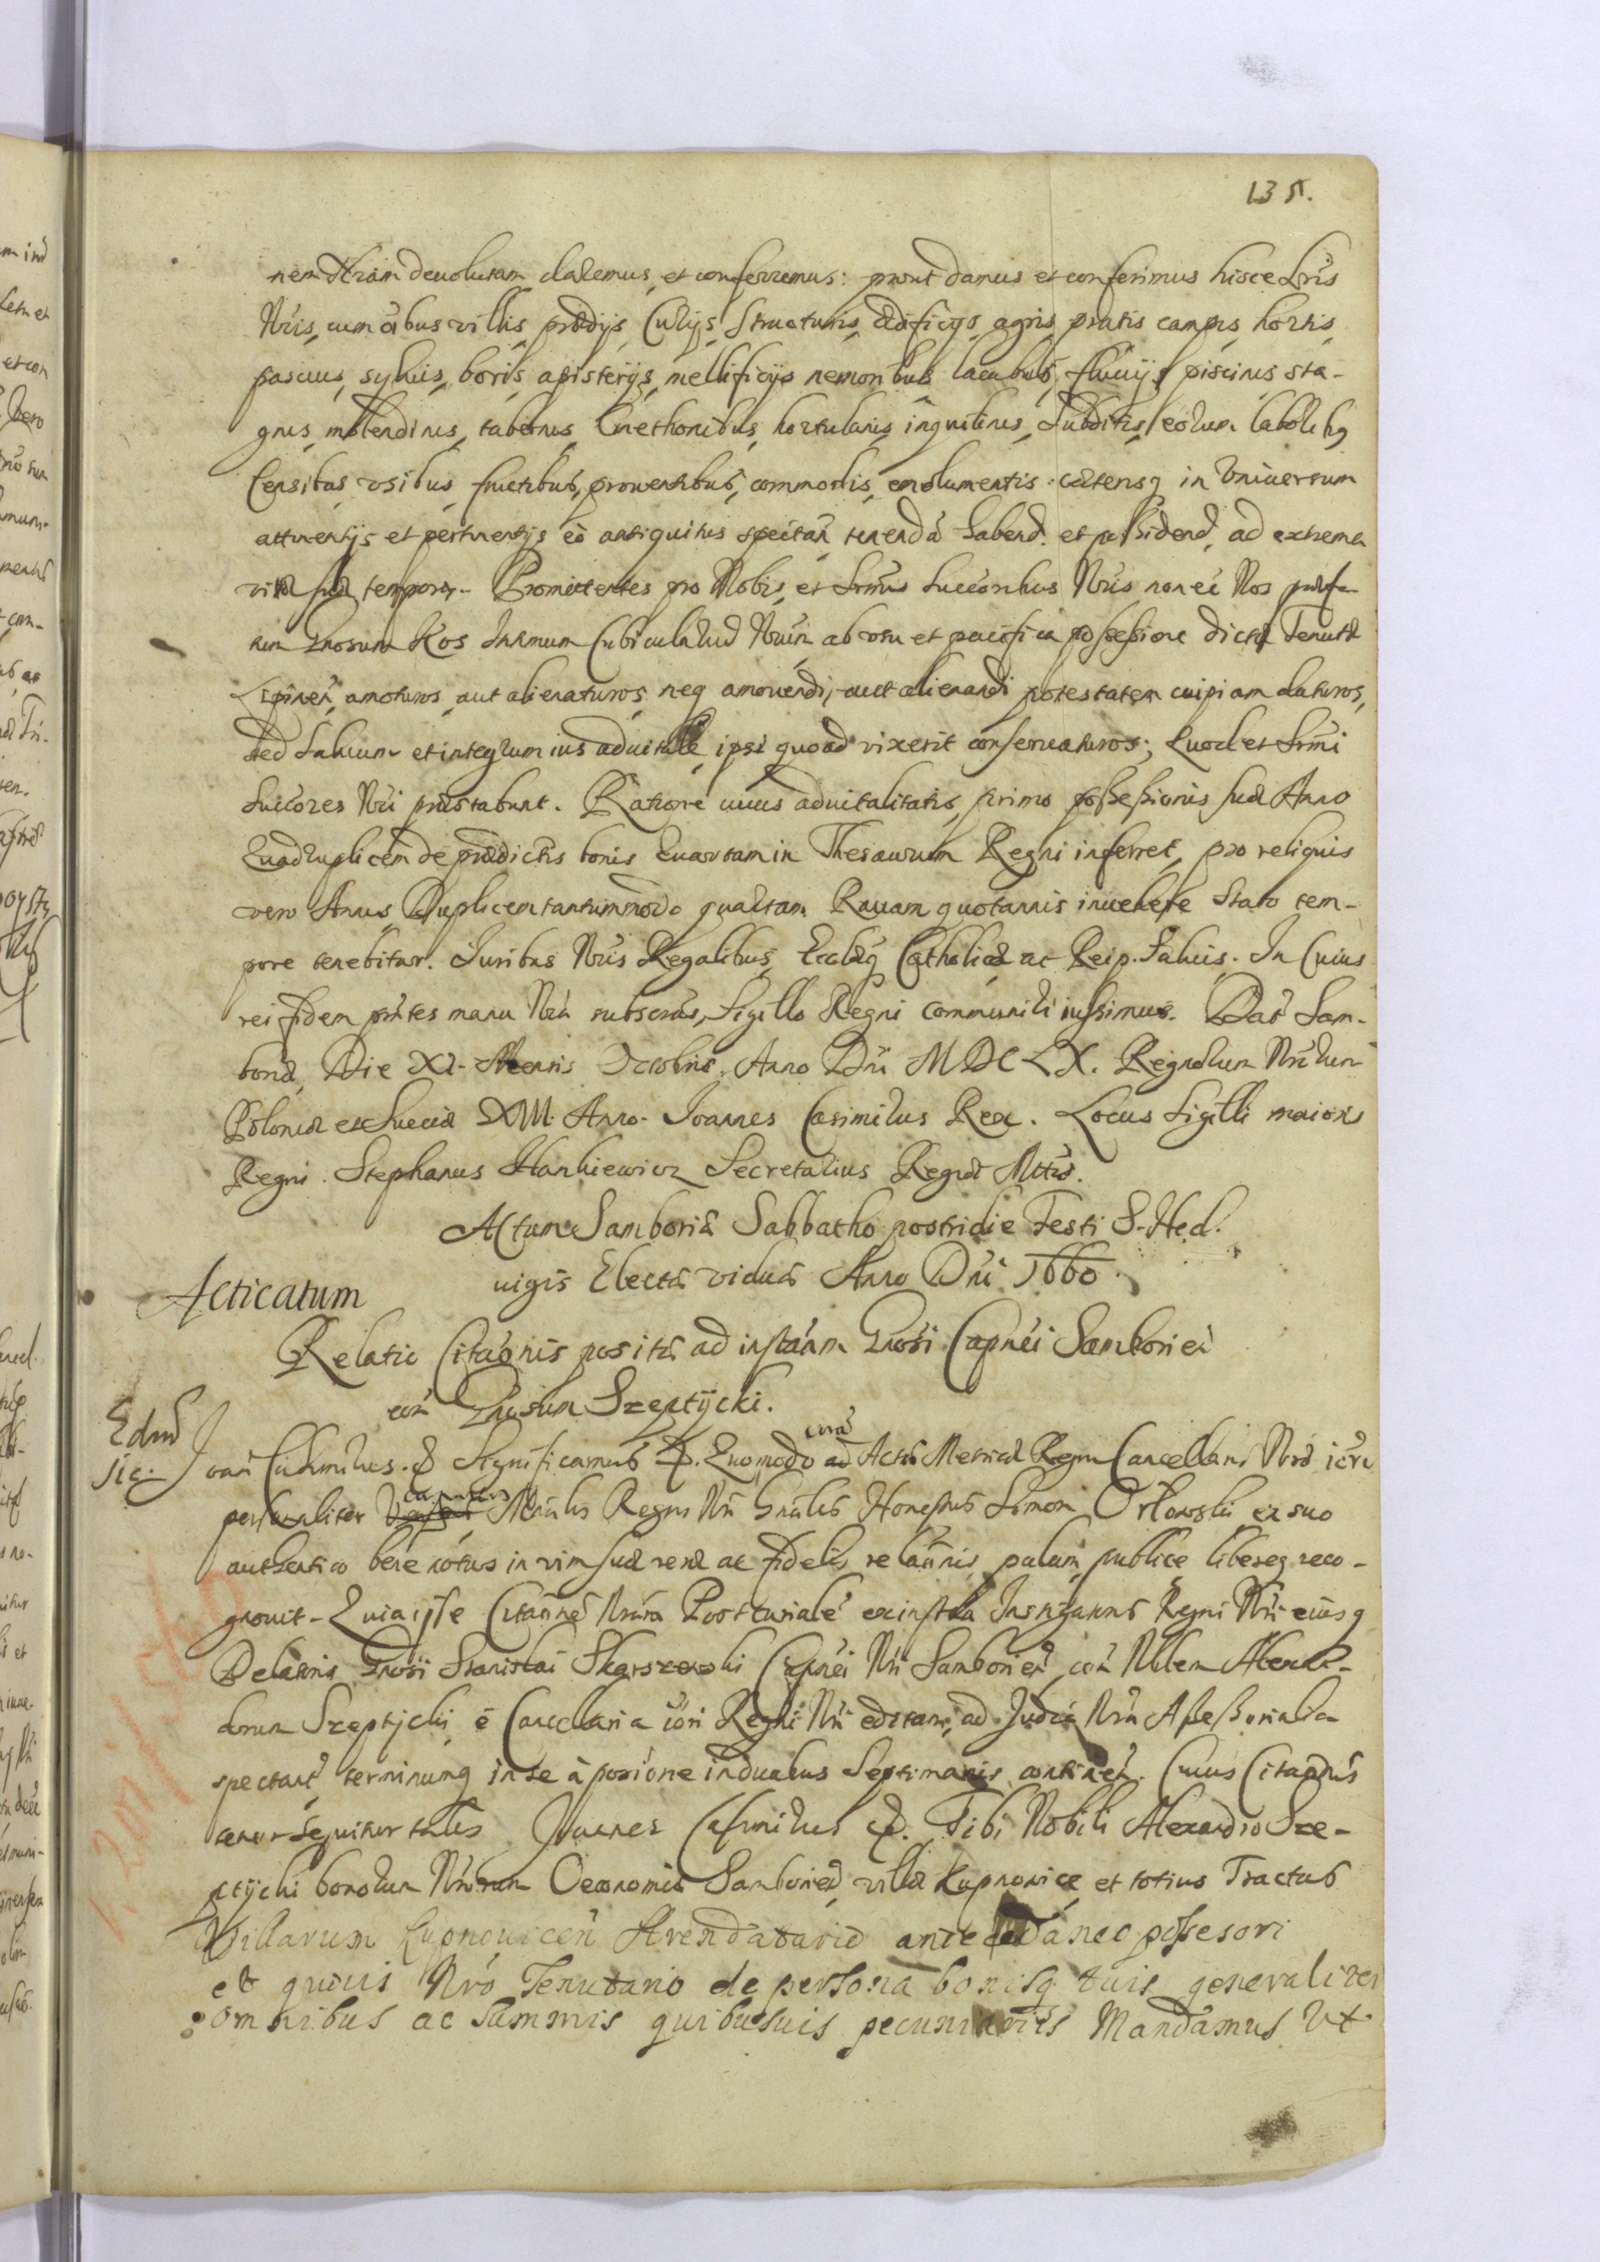 135.
nem Nram devolutam daremus, et conferremus: prout damus et conferimus hisce Lris
Nris, cum oibus villis, prædijs, Curijs, structuris, ædificijs, agris, pratis, campis, hortis,
pascuis, sylvis, boris, apisterijs, mellificijs nemoribus lacubus, fluvijs piscinis sta-
gnis, molendinis, tabernis, Cmethonibus, hortulanis, inquilinis, Subditis, eorum laboribq
Censibus usibus fructibus, proventibus, commodis, emolumentis cæterisq in Universum
attinentijs et pertinentijs eò antiquitus spectan tenenda habend. et possidend. ad extrema
vitæ suæ tempora. Promittentes pro Nobis, et Srmis Succoribus Nris non eē Nos præfa-
tum Gnosum Kos Intimum Cubicularium Nrum ab usu et pacifica possessione dictæ Tenutæ
Lipinen, amoturos, aut alienaturos, neq amovendi, aut alienandi potestatem cuipiam daturos,
sed salvum et integrum ius advitale, ipsi quoad vixerit conservaturos; Quod et Srmi
Succores Nri præstabunt. Ratione cuius advitalitatis, primo possessionis suæ Anno
Quadruplicem de prædictis bonis Quartam in Thesaurum Regni inferret, pro reliquis
vero Annis Duplicem tantummodo quartam Ravam quotannis invehere stato tem-
pore tenebitur. Juribus Nris Regalibus, Ecclæq Catholicæ ac Reip. Salvis. In Cuius
rei fidem pntes manu Nra subscras, Sigillo Regni communiri iussimus. Dat Sam-
boriæ, Die XI. Mensis Octobris. Anno Dni MDCLX. Regnorum Nrorum
Poloniæ et Sueciæ XII. Anno. Joannes Casimirus Rex. Locus Sigilli maioris
Regni. Stephanus Hankiewicz Secretarius Regiæ Mttis.
Actum Samboriæ Sabbatho postridie Festi S. Hed-
vigis Electæ viduæ Anno Dni 1660.
Acticatum
Relatio Citaonis positæ ad instam Gnosi Capnei Samborien
con Gnosum Szeptycki.
Joan Casimirus. & Significamus &. Quomodo ad corā Actis Metrices Regni Cancellariæ Nræ
personaliter comparens Mrialis Regni Nri Gnalis Honestus Simon Orłowski ex suo
authentico bene notus in vim suæ veræ ac fidelis relaonis, palam publice libereq reco-
gnovit. Quia ipse Citaonē Nram Postcurialē ex instia Instigatoris Regni Nri eiusq
Delatoris Gnosi Stanislai Skarszewski Capnei Nri Samborien, con Nobilem Alexan-
drum Szeptycki, è Cancellaria Regni Nri editam, ad Judia Nra Assessorialia
spectant terminumq in se à posione in duabus Septimanis continen. Cuius Citaonis
tenor sequitur talis Joannes Casimirus &. Tibi Nobili Alexandro Sze-
ptycki bonorum Nrorum Oeconomiæ Samborien, villæ Kupnowice et totius Tractus
Villarum Kupnovicen Arendatario antecedaneo possesori
et quivis Nro Tenutario de persona bonisq tuis generaliter
omnibus ac Summis quibusvis pecuniariis Mandamus Ut